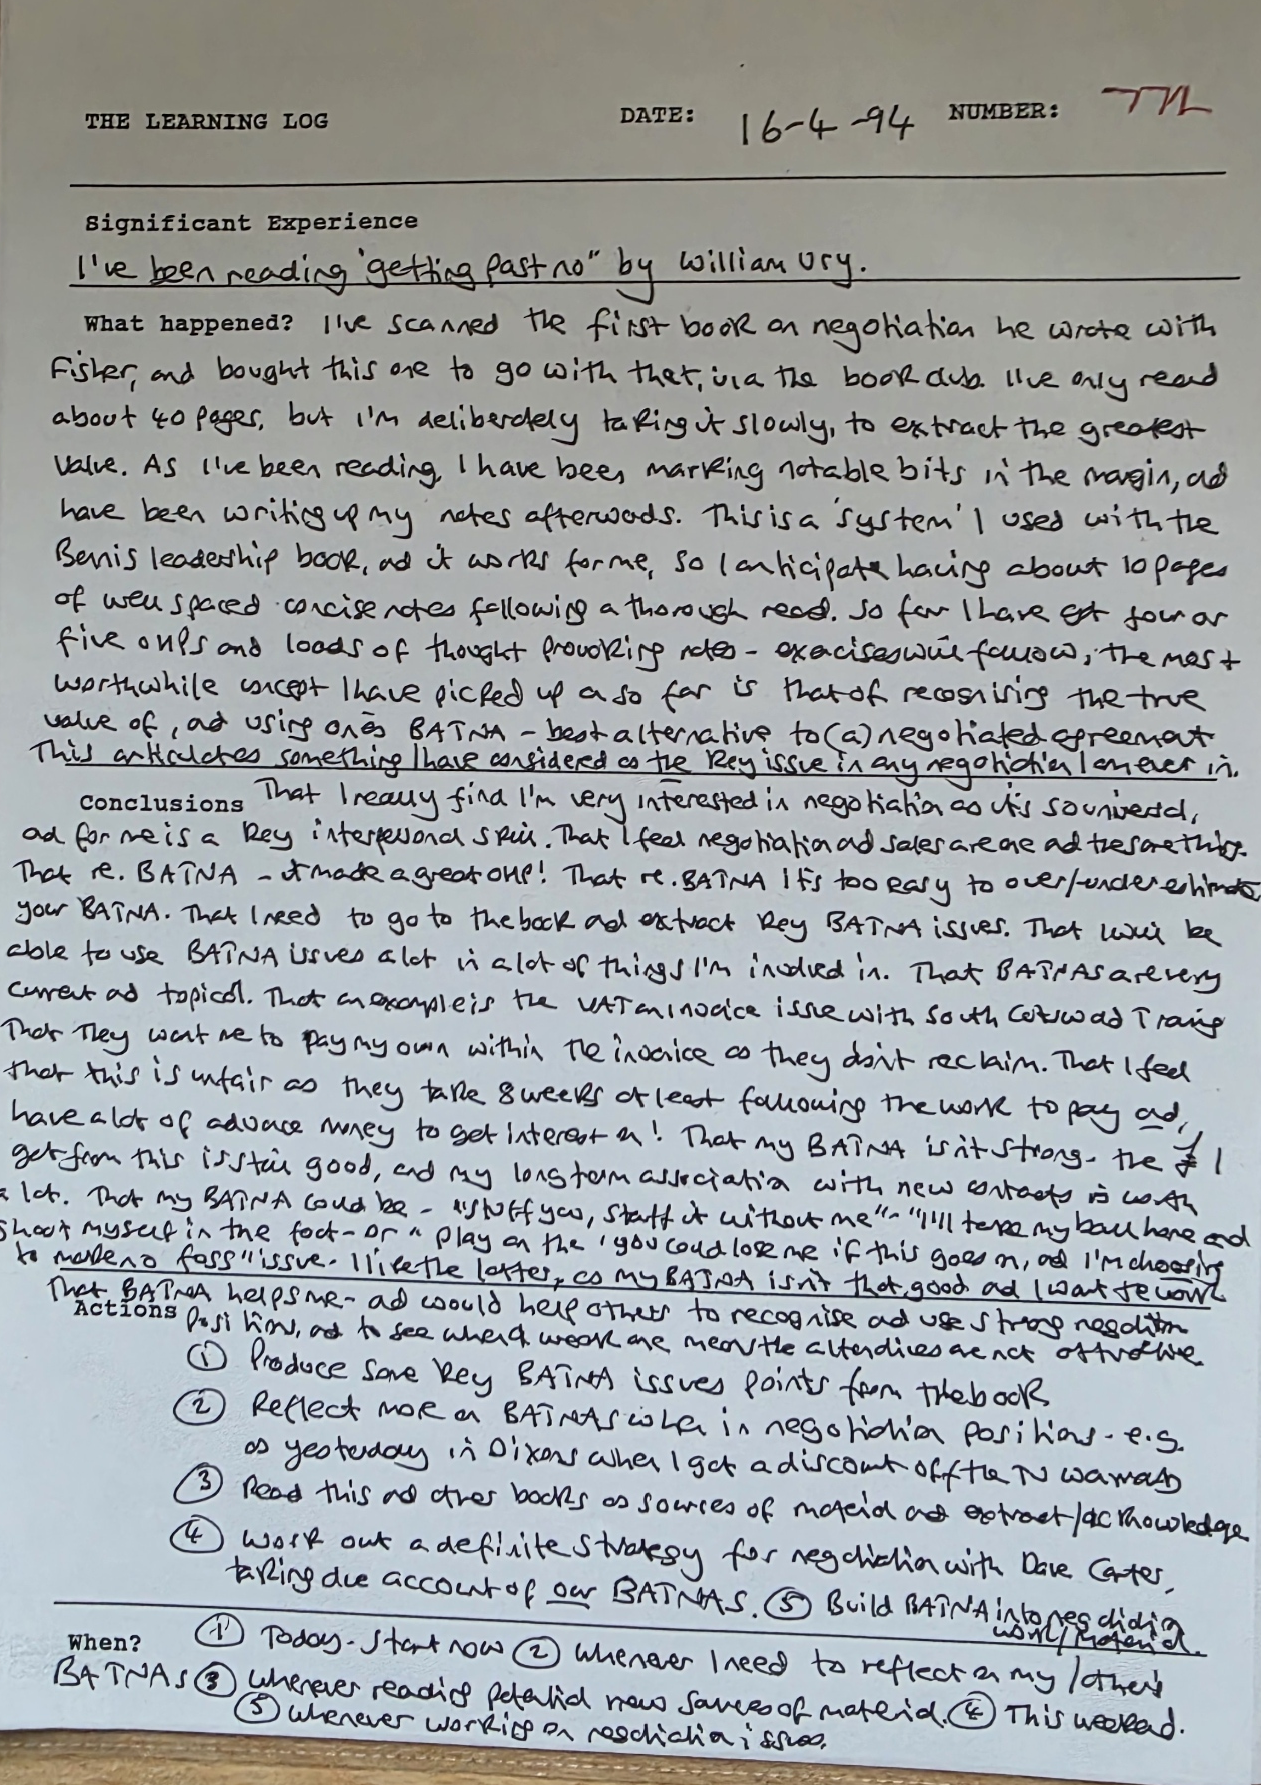 THE LEARNING LOG DATE: 16-4-94 NUMBER:
Significant Experience
I've been reading 'getting past no" by William Ury.
What happened? I've scanned the first book on negotiation he wrote with
Fisher, and bought this one to go with that, via the book club. I've only read
about 40 pages, but I'm deliberately taking it slowly, to extract the greatest
value. As I've been reading, I have been marking notable bits in the margin, and
have been writing up my notes afterwards. This is a 'system' I used with the
Bennis leadership book, and it works for me, so I anticipate having about 10 pages
of well spaced concise notes following a thorough read. So far I have got four or
five OHPs and loads of thought provoking notes - exercises will follow, the most
worthwhile concept I have picked up so far is that of recognising the true
value of, and using one's BATNA - best alternative to (a) negotiated agreement
This articulates something I have considered as the key issue in any negotiation I am ever in.
Conclusions That I really find I'm very interested in negotiation as it's so universal,
and for me is a key interpersonal skill. That I feel negotiation and sales are one and the same thing.
That re. BATNA - it made a great OHP! That re. BATNA it's too easy to over/under estimate
your BATNA. That I need to go to the book and extract key BATNA issues. That I will be
able to use BATNA issues a lot in a lot of things I'm involved in. That BATNAs are very
current and topical. That an example is the VAT on invoice issue with South Cotswold Training
That they want me to pay my own within the invoice as they don't reclaim. That I feel
that this is unfair as they take 8 weeks at least following the work to pay and,
have a lot of advance money to get interest on! That my BATNA isn't strong - the £ I
get from this is still good, and my long term association with new contacts is worth
a lot. That my BATNA could be - "stuff you, staff it without me" - "I'll take my ball home and
shoot myself in the foot - or " play on the 'you could lose me if this goes on, and I'm choosing
to make no fuss" issue. I like the latter, as my BATNA isn't that good and I want the work
That BATNA helps me - and would help others to recognise and use strong negotiation
Actions positions, and to see when a weak one means the alternatives are not attractive.
① Produce some key BATNA issues points from the book
② Reflect more on BATNAS when in negotiation positions - e.g.
as yesterday in Dixons when I got a discount off the TV warranty
③ Read this and other books as sources of material and extract/acknowledge
④ Work out a definite strategy for negotiation with Dave Carter,
taking due account of our BATNAS. ⑤ Build BATNA into negotiation
work/material.
When? ① Today - start now ② Whenever I need to reflect on my/other's
BATNAS ③ whenever reading potential new sources of material. ④ This weekend.
⑤ whenever working on negotiation issues.